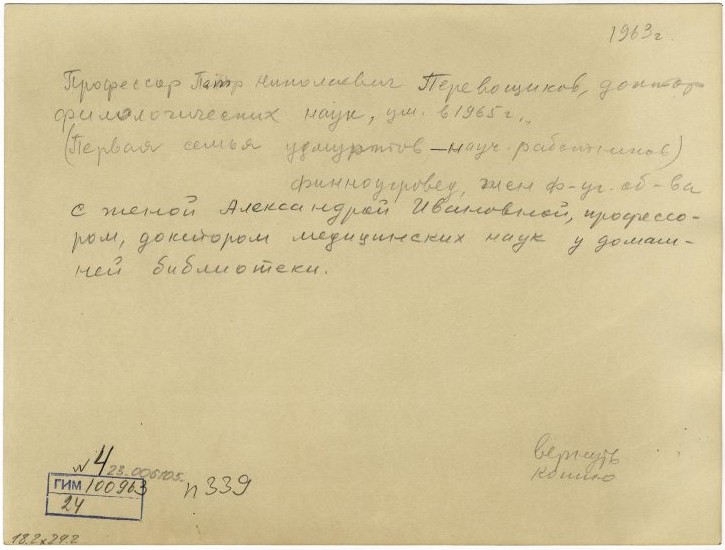 1963 г.
Профессор Петр Николаевич Перевощиков, доктор
филологических наук, ум. в 1965 г.,
(Первая семья удмуртов – науч. работников)
финноугровед, член ф-уг. об-ва
с женой Александрой Ивановной, профессо-
ром, доктором медицинских наук у домаш-
ней библиотеки.
вернуть
копию
N 4
23-006105
ГИМ 100963
24
п 339
18.2x24.2